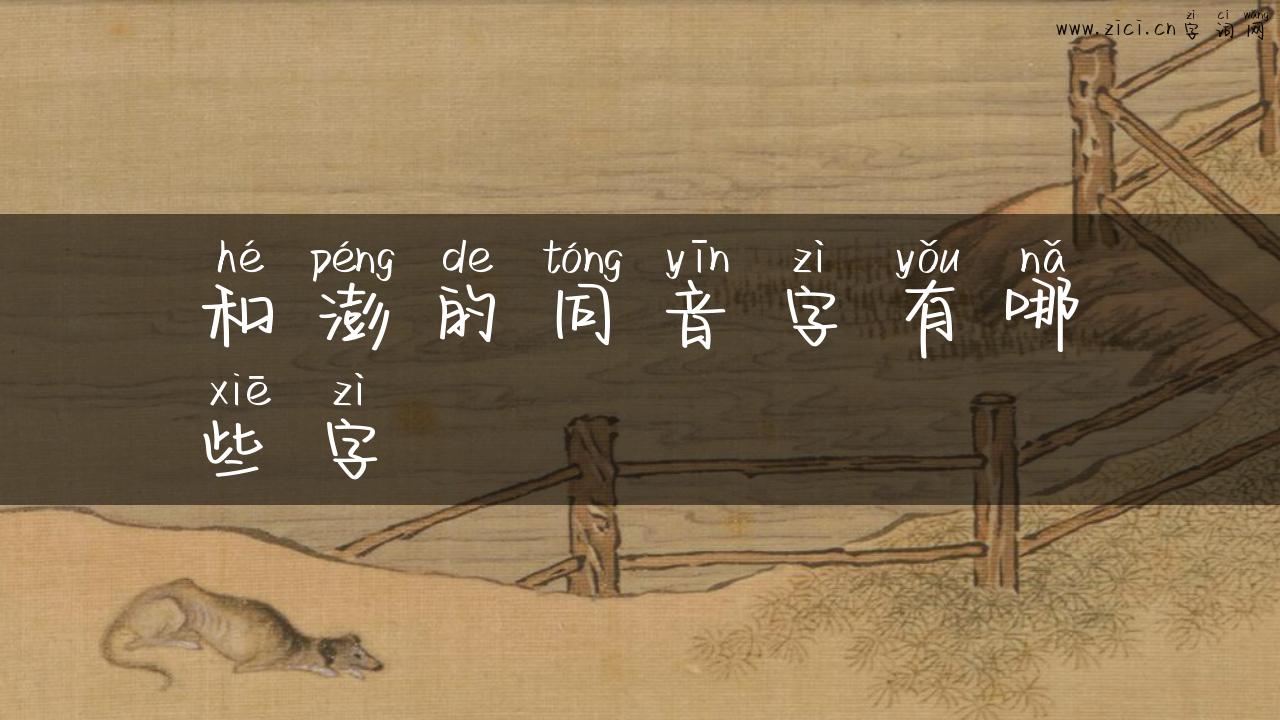 zì cí wǎng
www.zici.cn字词网
hé péng de tóng yīn zì yǒu nǎ
和澎的同音字有哪
xiē zì
些字